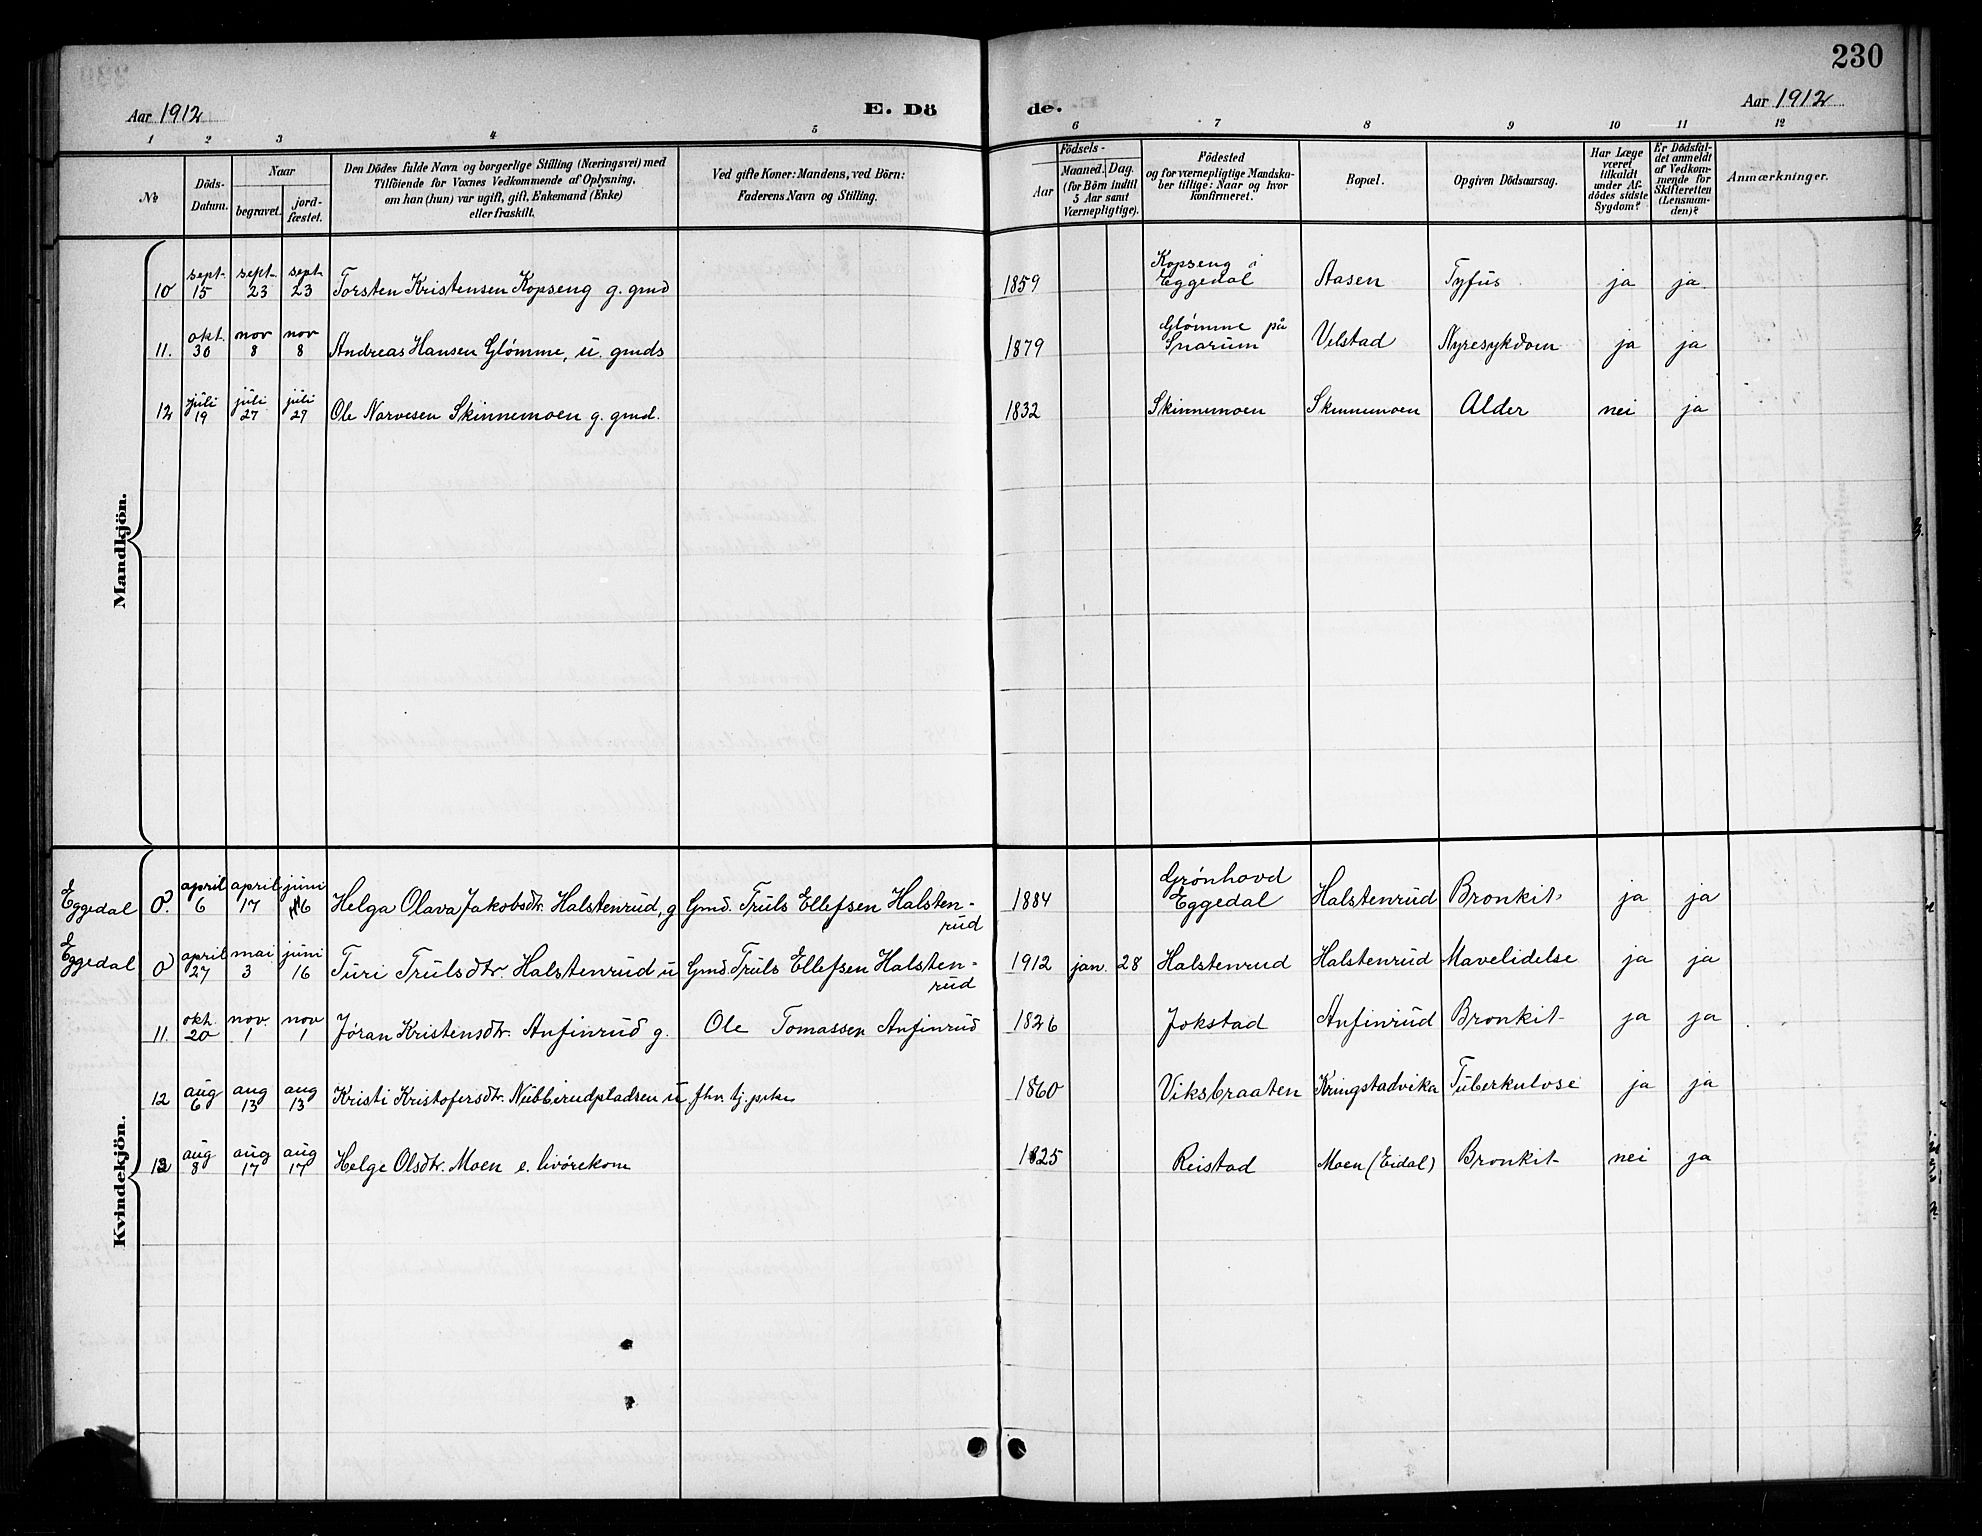 230
Aar 1912
E. Dö
de.
Aar 1912
1 2 3 4 5 6 7 8 9 10 11 12
No
Döds-Datum.
Naar
begravet.
jord-fæstet.
Den Dödes fulde Navn og borgerlige Stilling (Næringsvei) med
Tilföiende for Voxnes Vedkommende af Oplysning,
om han (hun) var ugift, gift, Enkemand (Enke)
eller fraskilt.
Ved gifte Koner: Mandens, ved Börn:
Faderens Navn og Stilling.
Födsels-
Aar
Maaned. Dag.
(for Börn indtil
5 Aar samt
Værnepligtige).
Födested
og for værnepligtige Mandska-
ber tillige: Naar og hvor
konfirmeret.
Bopæl.
Opgiven Dödsaarsag.
Har Læge
været
tilkaldt
under Af-
dödes sidste
Sygdom?
Er Dödsfal-
det anmeldt
af Vedkom-
mende for
Skifteretten
(Lensman-
den)?
Anmærkninger.
Mandkjön.
10 sept. 15 sept. 23 sept 23 Torsten Kristensen Kopseng g. gmd 1859 Kopseng i Eggedal Aasen Tyfus ja ja
11. okt. 30 nov 8 nov 8 Andreas Hansen Glømme, u. gmds 1879 Glømme på Snarum Velstad Nyresykdom ja ja
12 juli 19 juli 27 juli 27 Ole Narvesen Skinnemoen g. gmd. 1832 Skinnemoen Skinnemoen Alder nei ja
Kvindekjön.
Eggedal april 6 april 17 juni 16 Helga Olava Jakobsdtr. Halstenrud, g Gmd. Truls Ellefsen Halsten-
rud 1884 Grønhovd Eggedal Halstenrud Bronkit ja ja
Eggedal april 27 mai 3 juni 16 Turi Trulsdtr. Halstenrud u Gmd. Truls Ellefsen Halsten-
rud 1912 jan. 28 Halstenrud Halstenrud Mavelidelse ja ja
11. okt. 20 nov. 1 nov 1 Jøran Kristensdtr. Anfinrud g. Ole Tomassen Anfinrud 1826 Jokstad Anfinrud Bronkit ja ja
12 aug 6 aug 13 aug 13 Kristi Kristofersdtr. Nubberudpladsen u. fhv. tj. pike 1860 Viksbraaten Kringstadvika Tuberkulose ja ja
13 aug 8 aug 17 aug 17 Helge Olsdtr. Moen e. livørekone 1825 Reistad Moen (Eidal) Bronkit nei ja